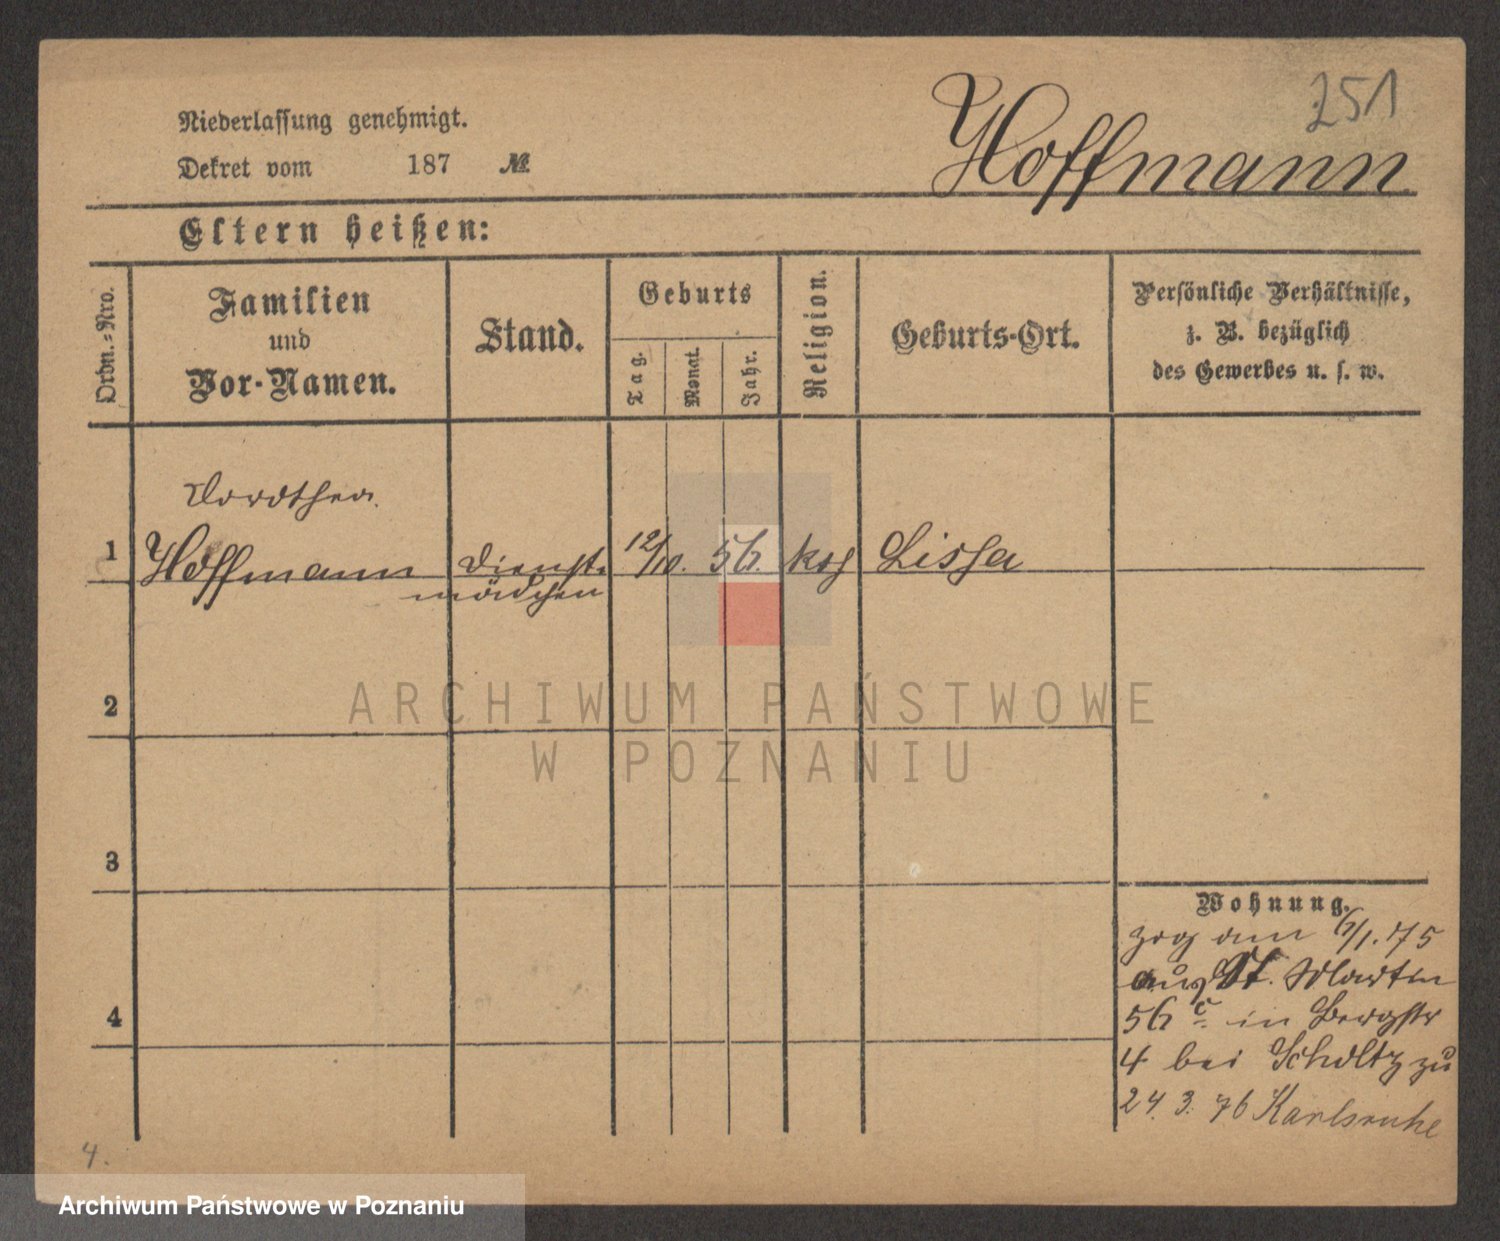 251
Niederlassung genehmigt.
Dekret vom 187 №
Hoffmann
Eltern heißen:
Ordn.-Nro.
Familien
und
Vor-Namen.
Stand.
Geburts
Tag.
Monat.
Jahr.
Religion.
Geburts-Ort.
Persönliche Verhältnisse,
z. B. bezüglich
des Gewerbes u. s. w.
Dorothea
1 Hoffmann Dienst- 12/10. 56. kath Lissa
mädchen
2
3
4
Wohnung.
zog am 6/1. 75
aus St. Martin
56 c in Bergstr
4 bei Scholtz zu
24. 3. 76 Karlsruhe
4.
ARCHIWUM PAŃSTWOWE
W POZNANIU
Archiwum Państwowe w Poznaniu